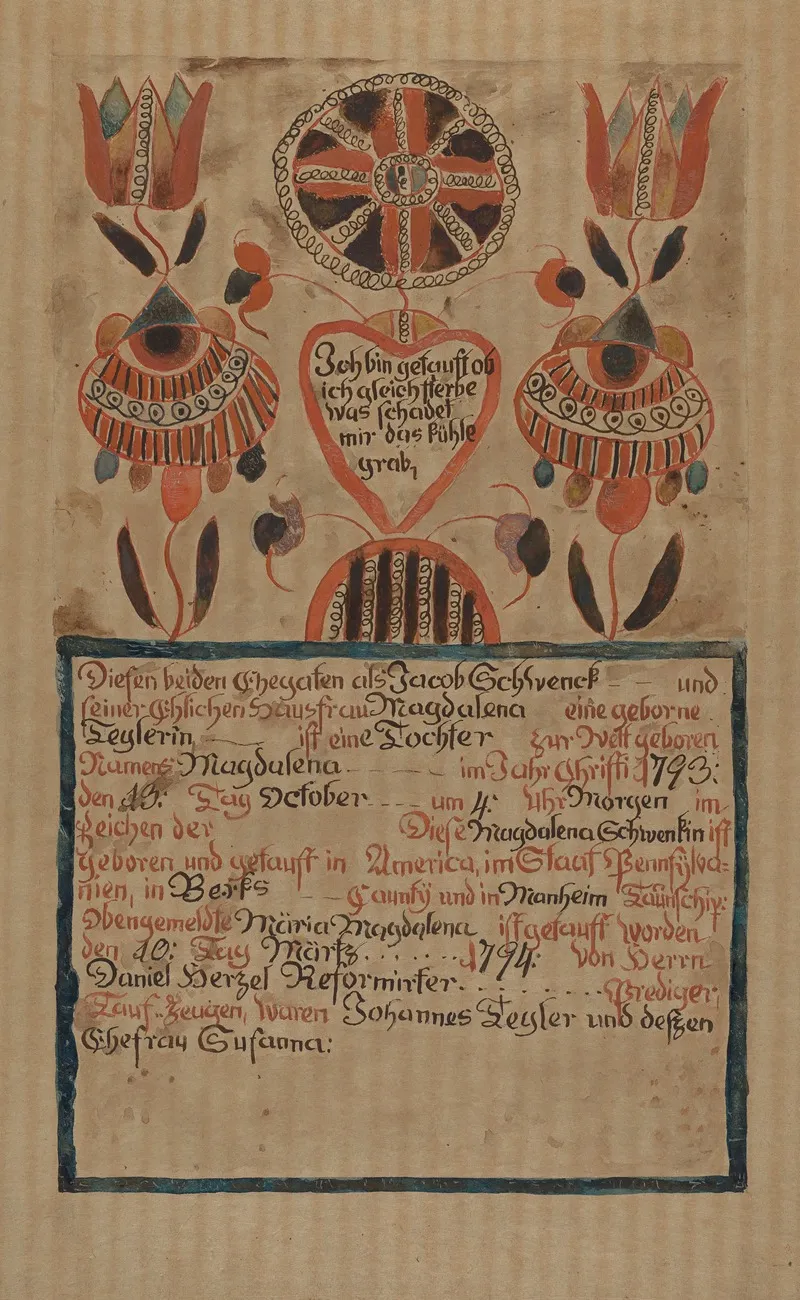 Ich bin getauft ob
ich gleich sterbe
was schadet
mir das kühle
grab,
Diesen beiden Ehegaten als Jacob Schwenck – – und
seiner Ehlichen Hausfrau Magdalena eine geborne
Teylerin, — ist eine Tochter zur Welt geboren
Namens Magdalena - - - - im Jahr Christi 1793:
den Tag October - - - um 4: Uhr Morgen im
Zeichen der Diese Magdalena Schwenkin ist
geboren und getauft in America, im Staat Pennsylva=
nien, in Berks – – Caunty und in Manheim Taunschip:
Obengemeldte Maria Magdalena ist getauft worden
den 10: Tag Märtz . . . . . . 1794: von Herrn
Daniel Herzel Reformirter. . . . . . . . Prediger,
Tauf-Zeugen, waren Johannes Teyler und deßen
Ehefrau Susanna: